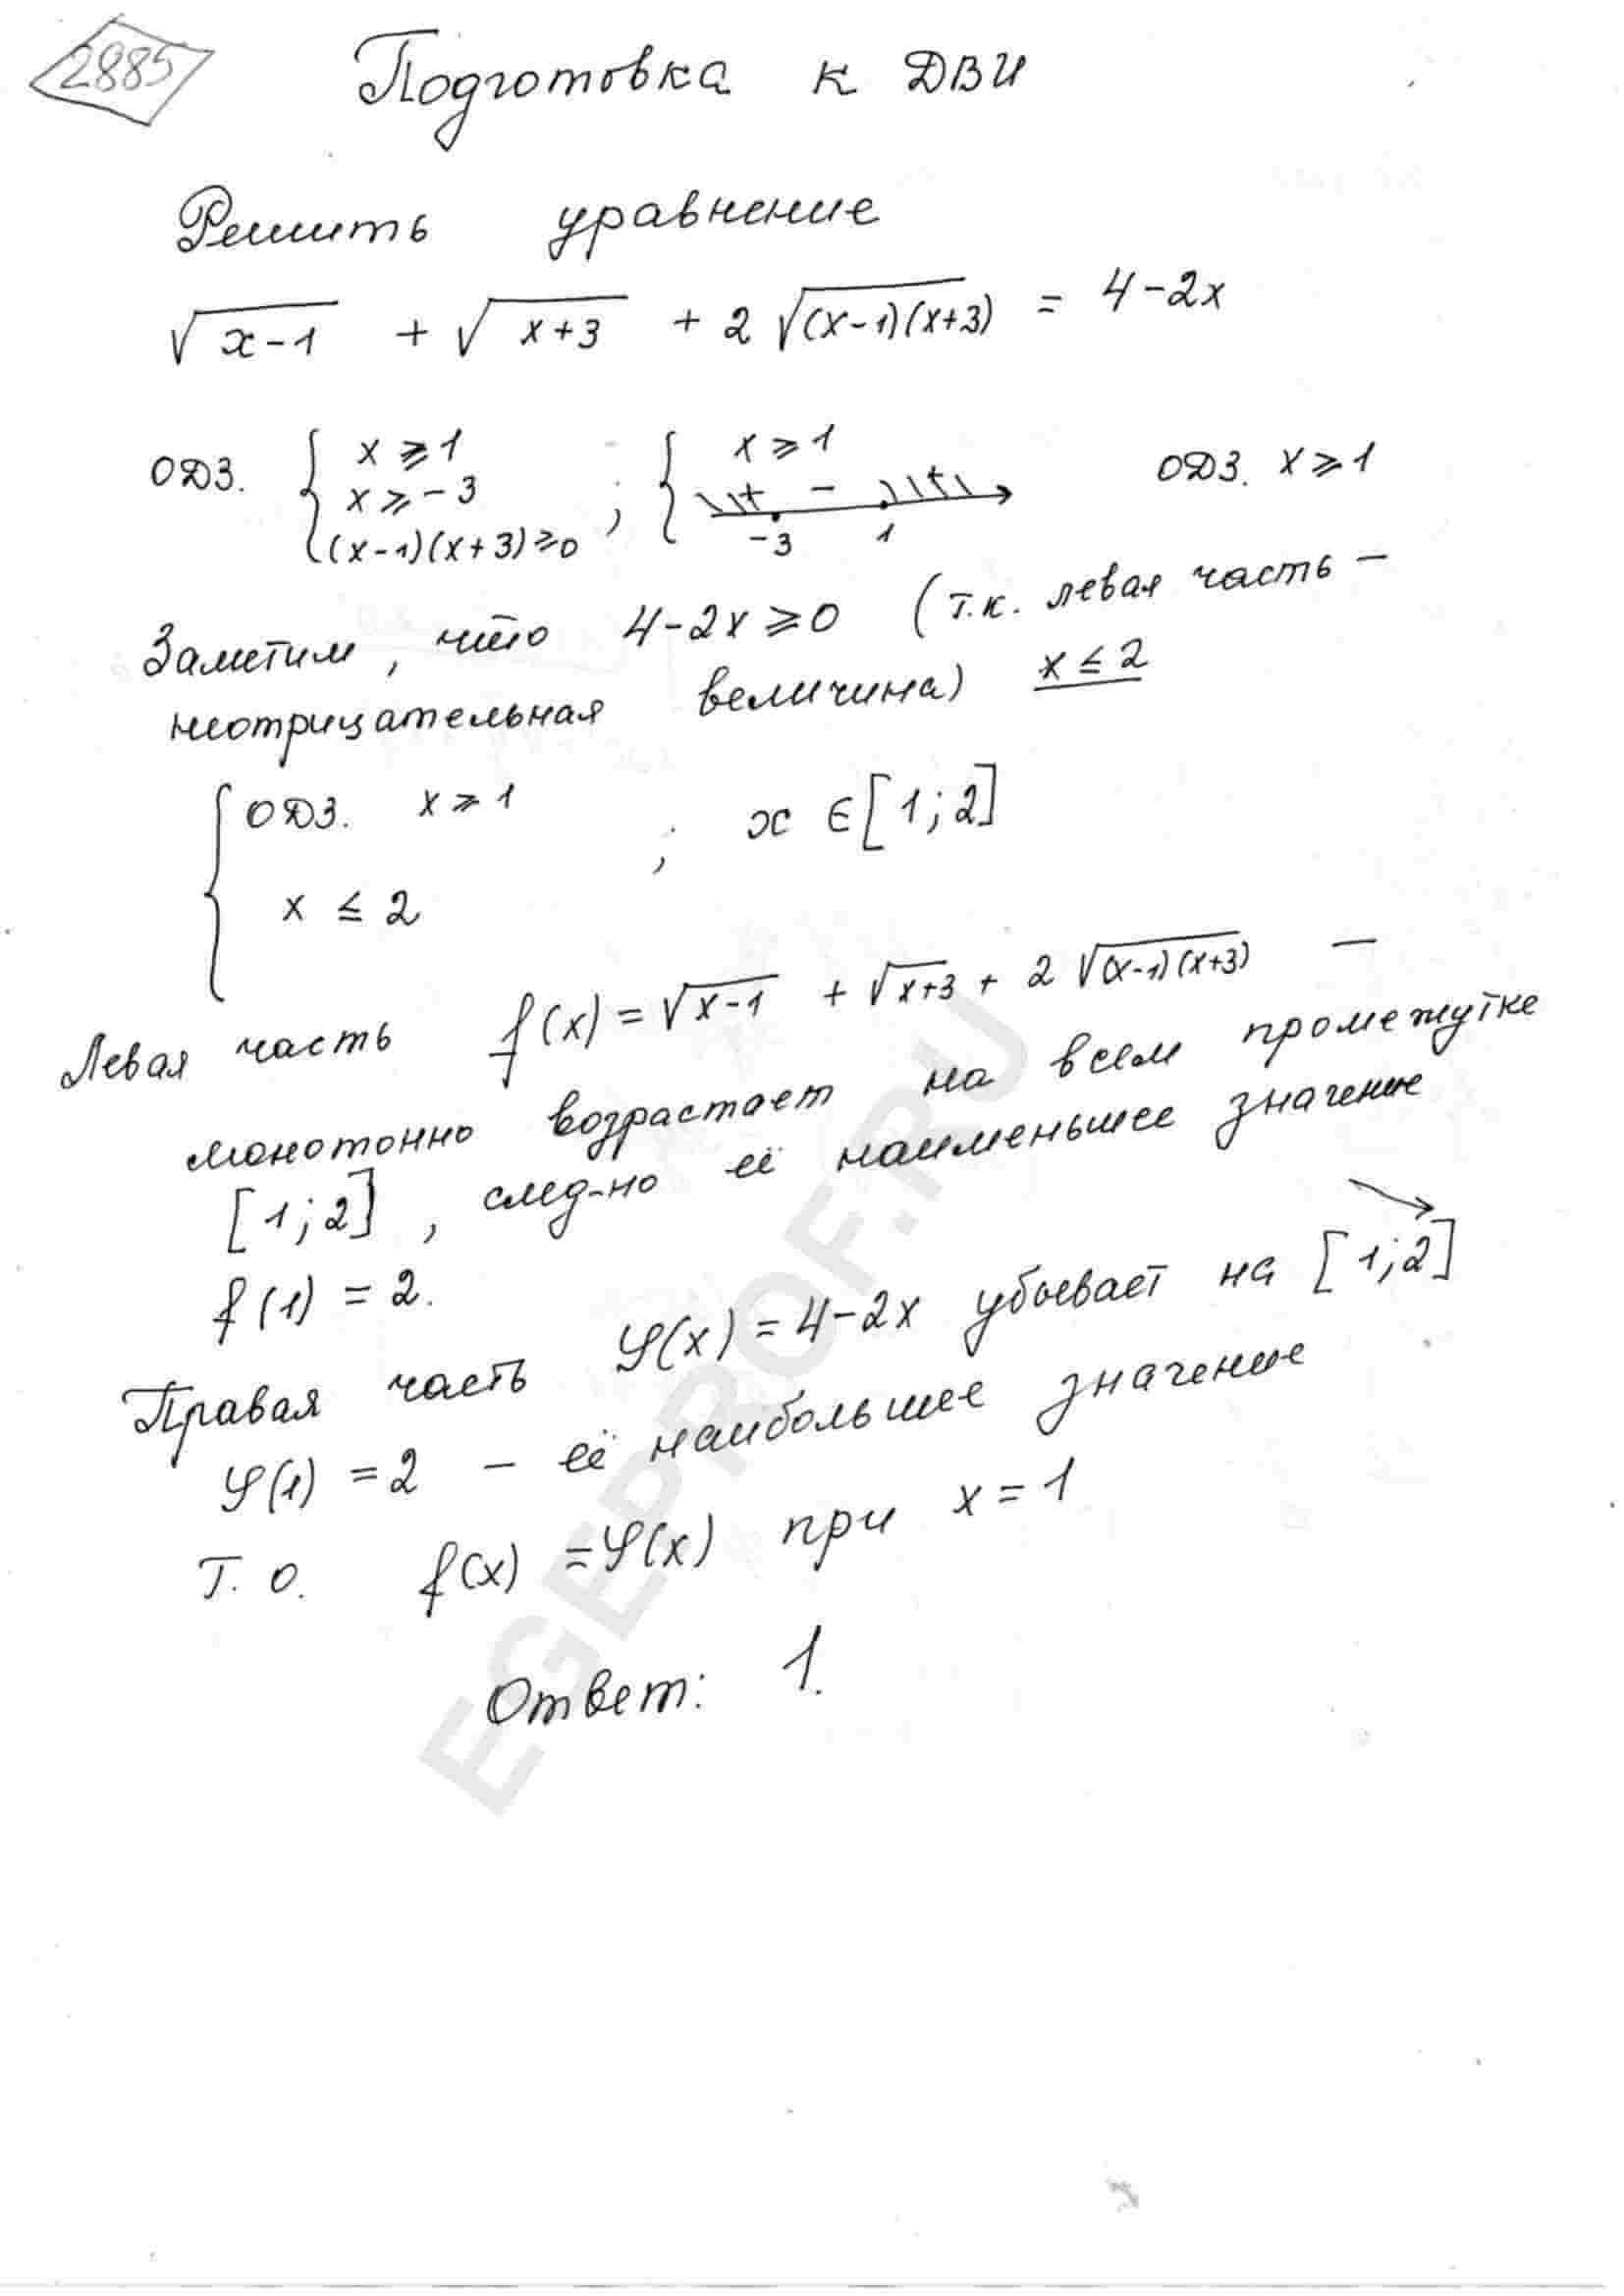 2885
Подготовка к ДВИ
Решить уравнение
√(x-1) + √(x+3) + 2√((x-1)(x+3)) = 4-2x
ОДЗ. { x ⩾ 1 ; { x ⩾ 1 ОДЗ. x ⩾ 1
x ⩾ -3 + - +
(x-1)(x+3) ⩾ 0 -3 1
Заметим, что 4-2x ⩾ 0 (т.к. левая часть -
неотрицательная величина) x ≤ 2
{ ОДЗ. x ⩾ 1 ; x ∈ [1; 2]
x ≤ 2
Левая часть f(x) = √(x-1) + √(x+3) + 2√((x-1)(x+3)) —
монотонно возрастает на всем промежутке
[1; 2], след-но её наименьшее значение
f(1) = 2.
Правая часть φ(x) = 4-2x убывает на [1; 2]
φ(1) = 2 - её наибольшее значение
Т. о. f(x) = φ(x) при x = 1
Ответ: 1.
EGEPROF.RU